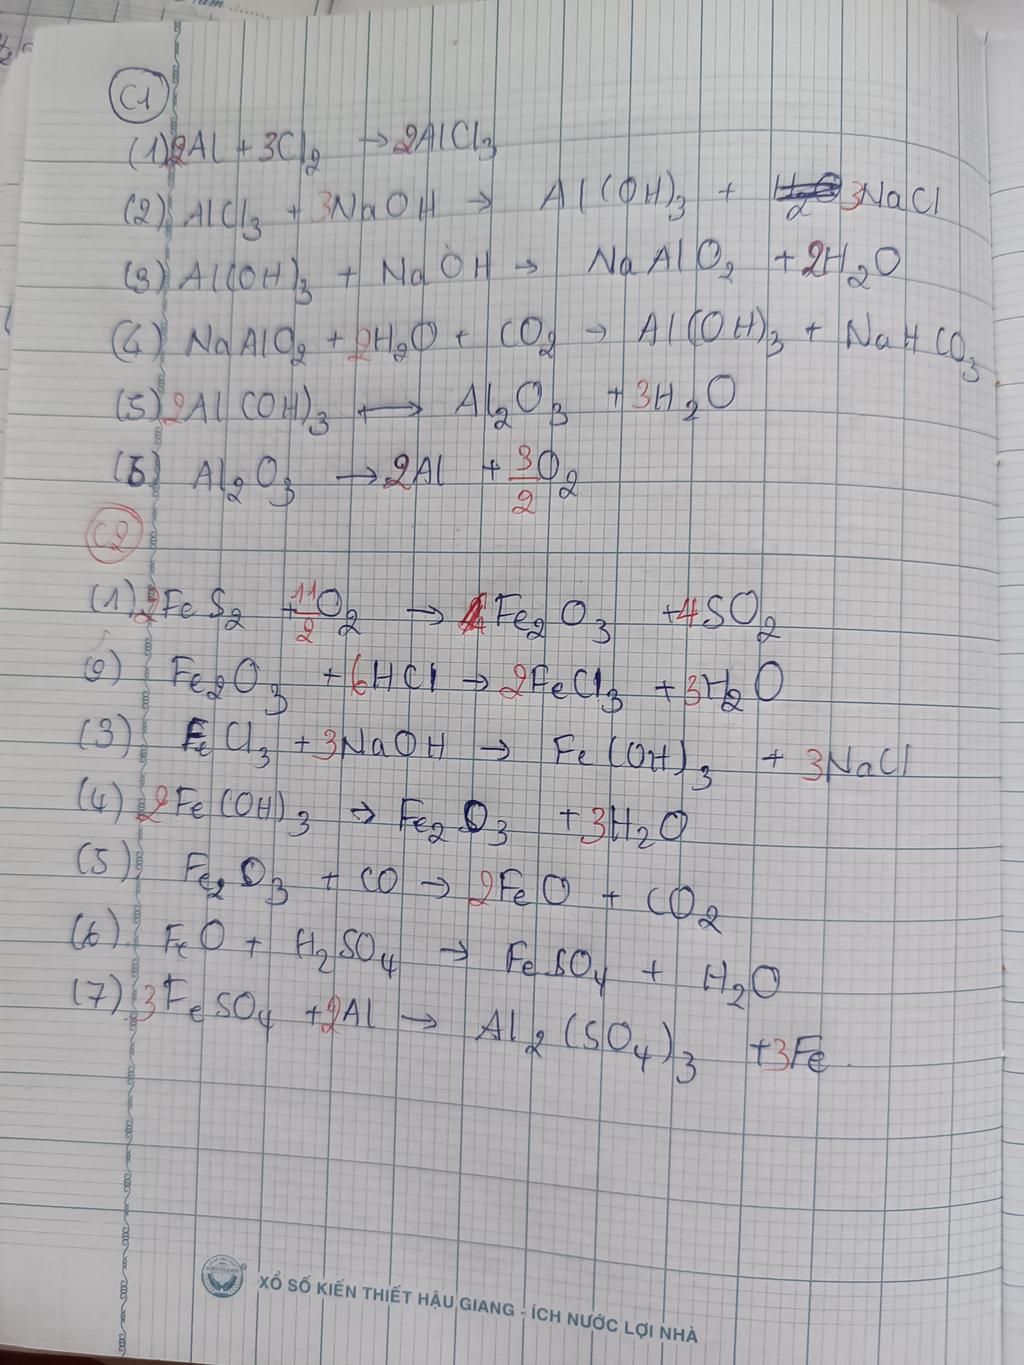 C1
(1) 2Al + 3Cl2 → 2AlCl3
(2) AlCl3 + 3NaOH → Al(OH)3 + 3NaCl
(3) Al(OH)3 + NaOH → NaAlO2 + 2H2O
(4) NaAlO2 + 2H2O + CO2 → Al(OH)3 + NaHCO3
(5) 2Al(OH)3 ⟷ Al2O3 + 3H2O
(6) Al2O3 → 2Al + 3/2 O2
C2
(1) 2FeS2 + 11/2 O2 → Fe2O3 + 4SO2
(2) Fe2O3 + 6HCl → 2FeCl3 + 3H2O
(3) FeCl3 + 3NaOH → Fe(OH)3 + 3NaCl
(4) 2Fe(OH)3 → Fe2O3 + 3H2O
(5) Fe2O3 + CO → 2FeO + CO2
(6) FeO + H2SO4 → FeSO4 + H2O
(7) 3FeSO4 + 2Al → Al2(SO4)3 + 3Fe.
XỔ SỐ KIẾN THIẾT HẬU GIANG - ÍCH NƯỚC LỢI NHÀ